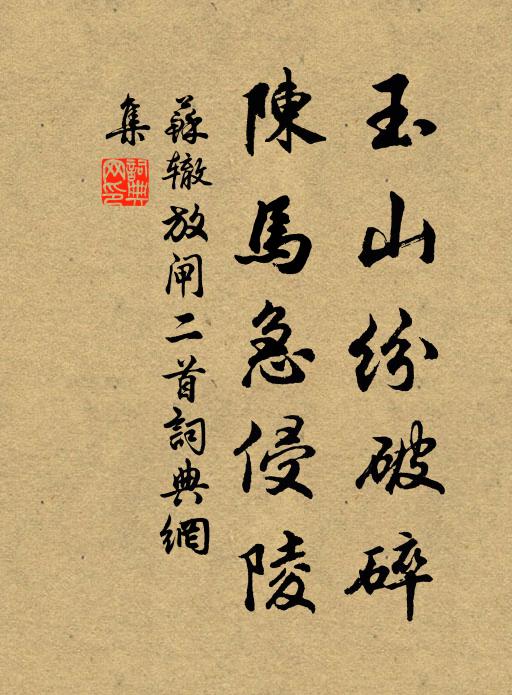 玉山纷破碎
陳馬急侵陵
蘇辙放闸二首詞典網
集
詞典
网印